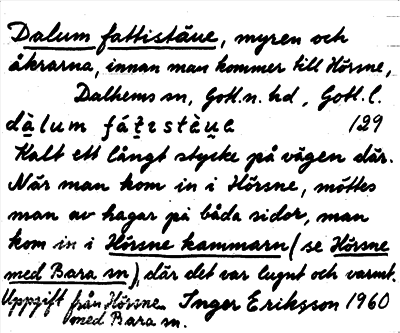 Dalum fattistäue, myren och
åkrarna, innan man kommer till Hörsne,
Dalhems sn, Gotl. n. hd, Gotl. l.
dàlum fátistäu̯e 129
Kalt ett långt stycke på vägen där.
När man kom in i Hörsne, möttes
man av hagar på båda sidor, man
kom in i Hörsne kammarn (se Hörsne
med Bara sn), där det var lugnt och varmt.
Uppgift från Hörsne Inger Eriksson 1960
med Bara sn.